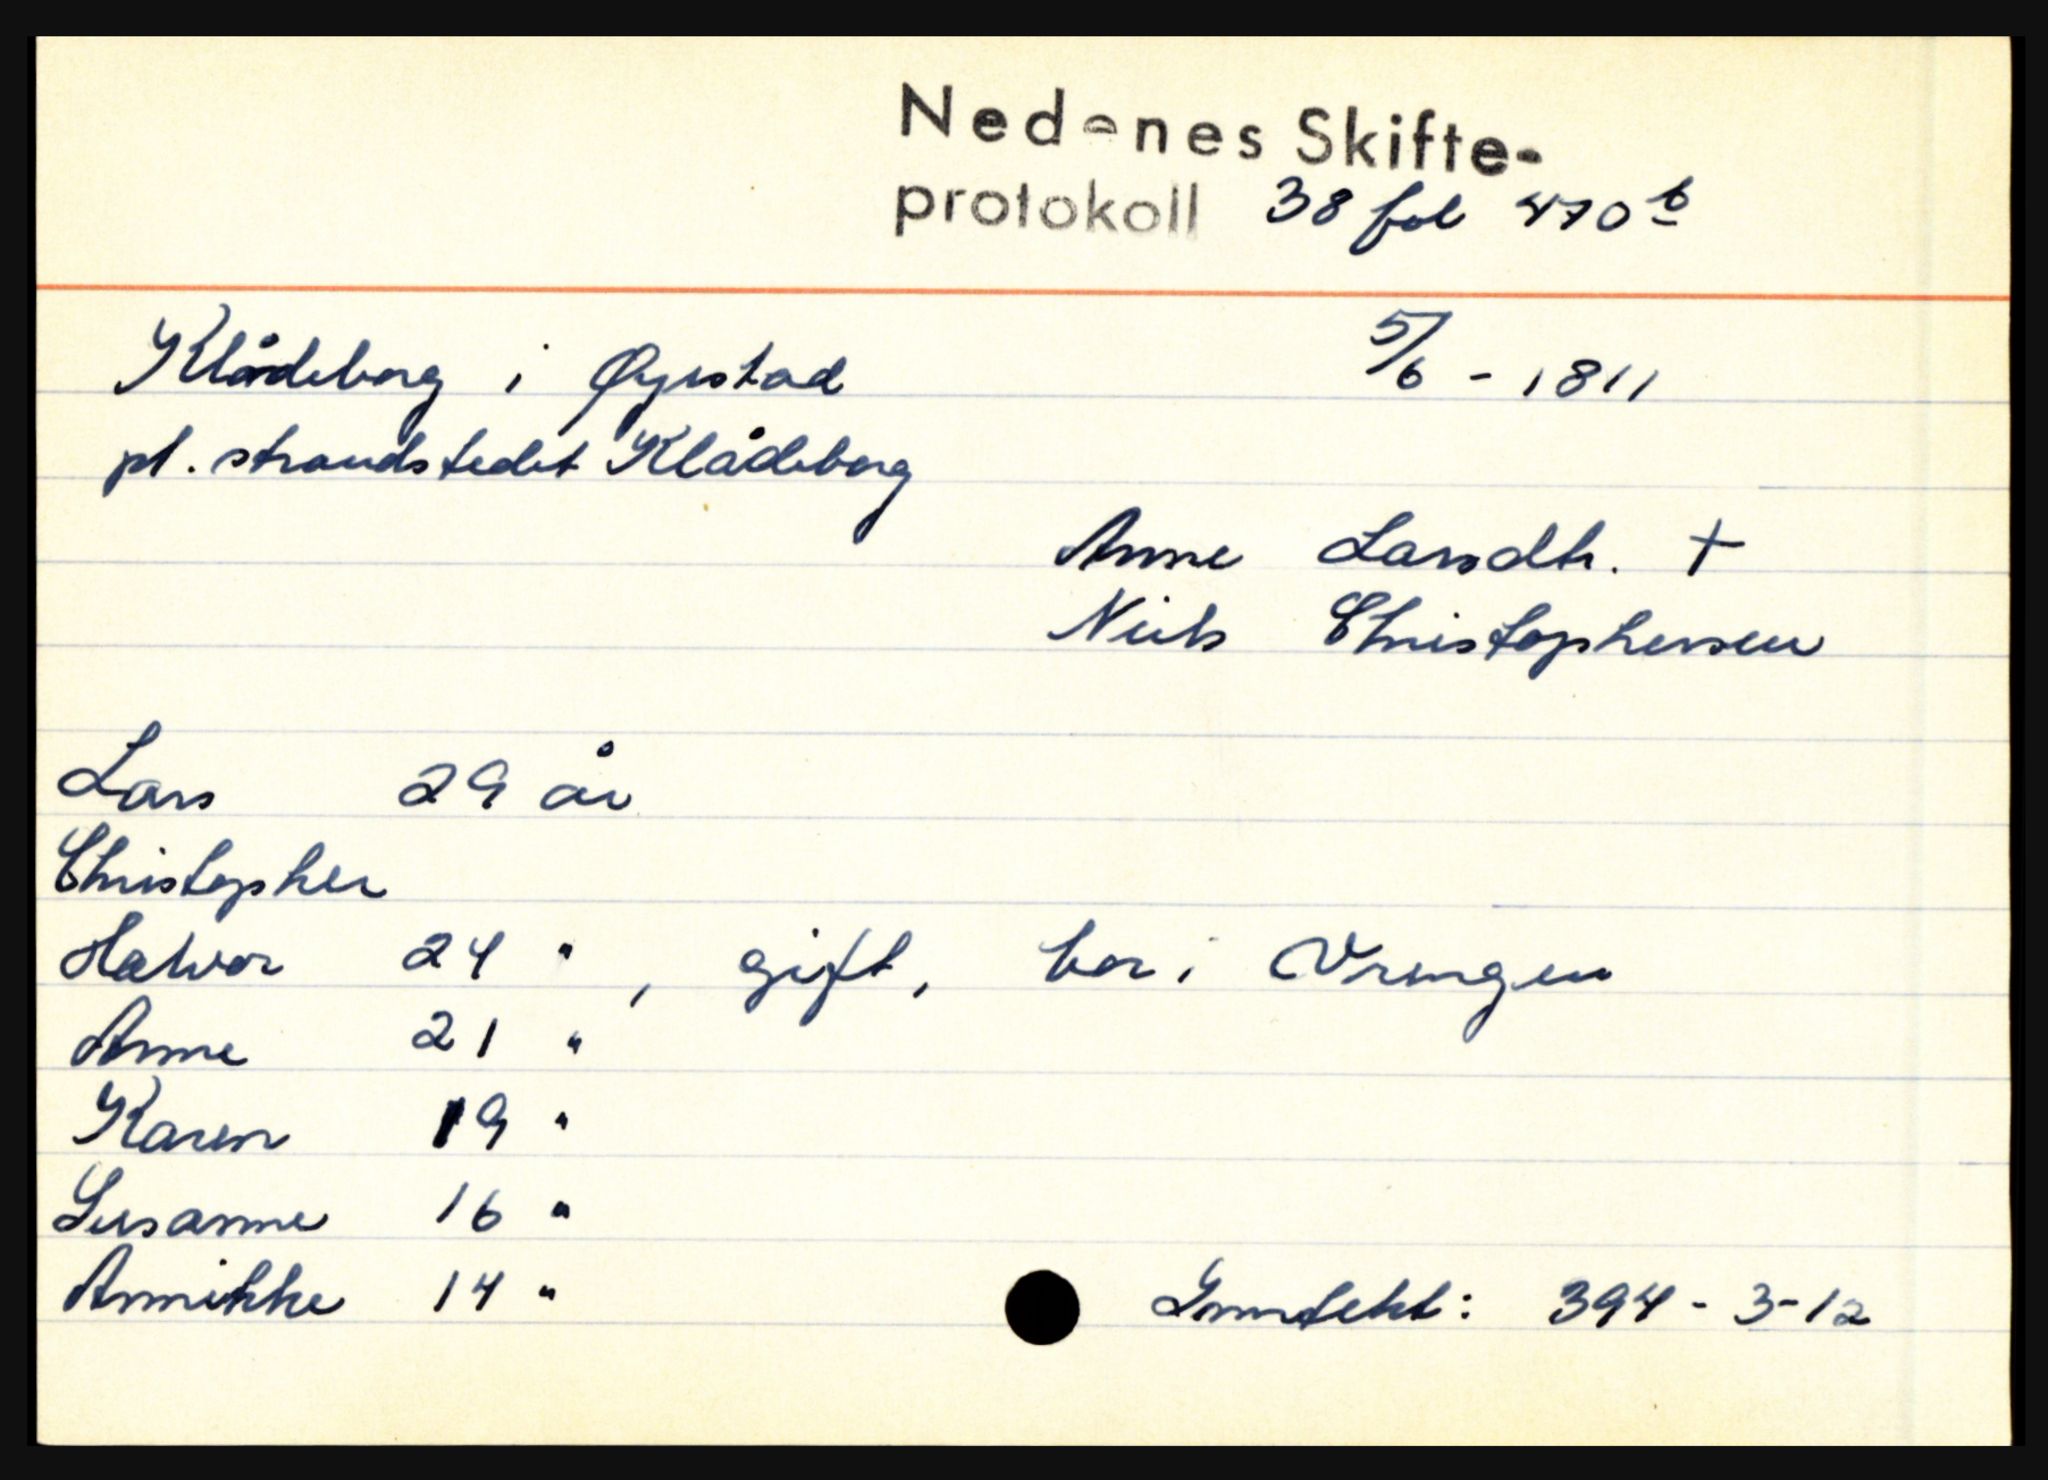 Nedenes Skifte-
protokoll 38 fol 470 b
Klådeborg i Øyestad 5/6 - 1811
pl. strandstedet Klådeborg
Anne Larsdtr. †
Niels Christophersen
Lars 29 år
Christopher
Halvor 24 " , gift, bor i Vrengen
Anne 21 "
Karen 19 "
Susanne 16 "
Annikke 14 "
Inntekt: 394-3-12